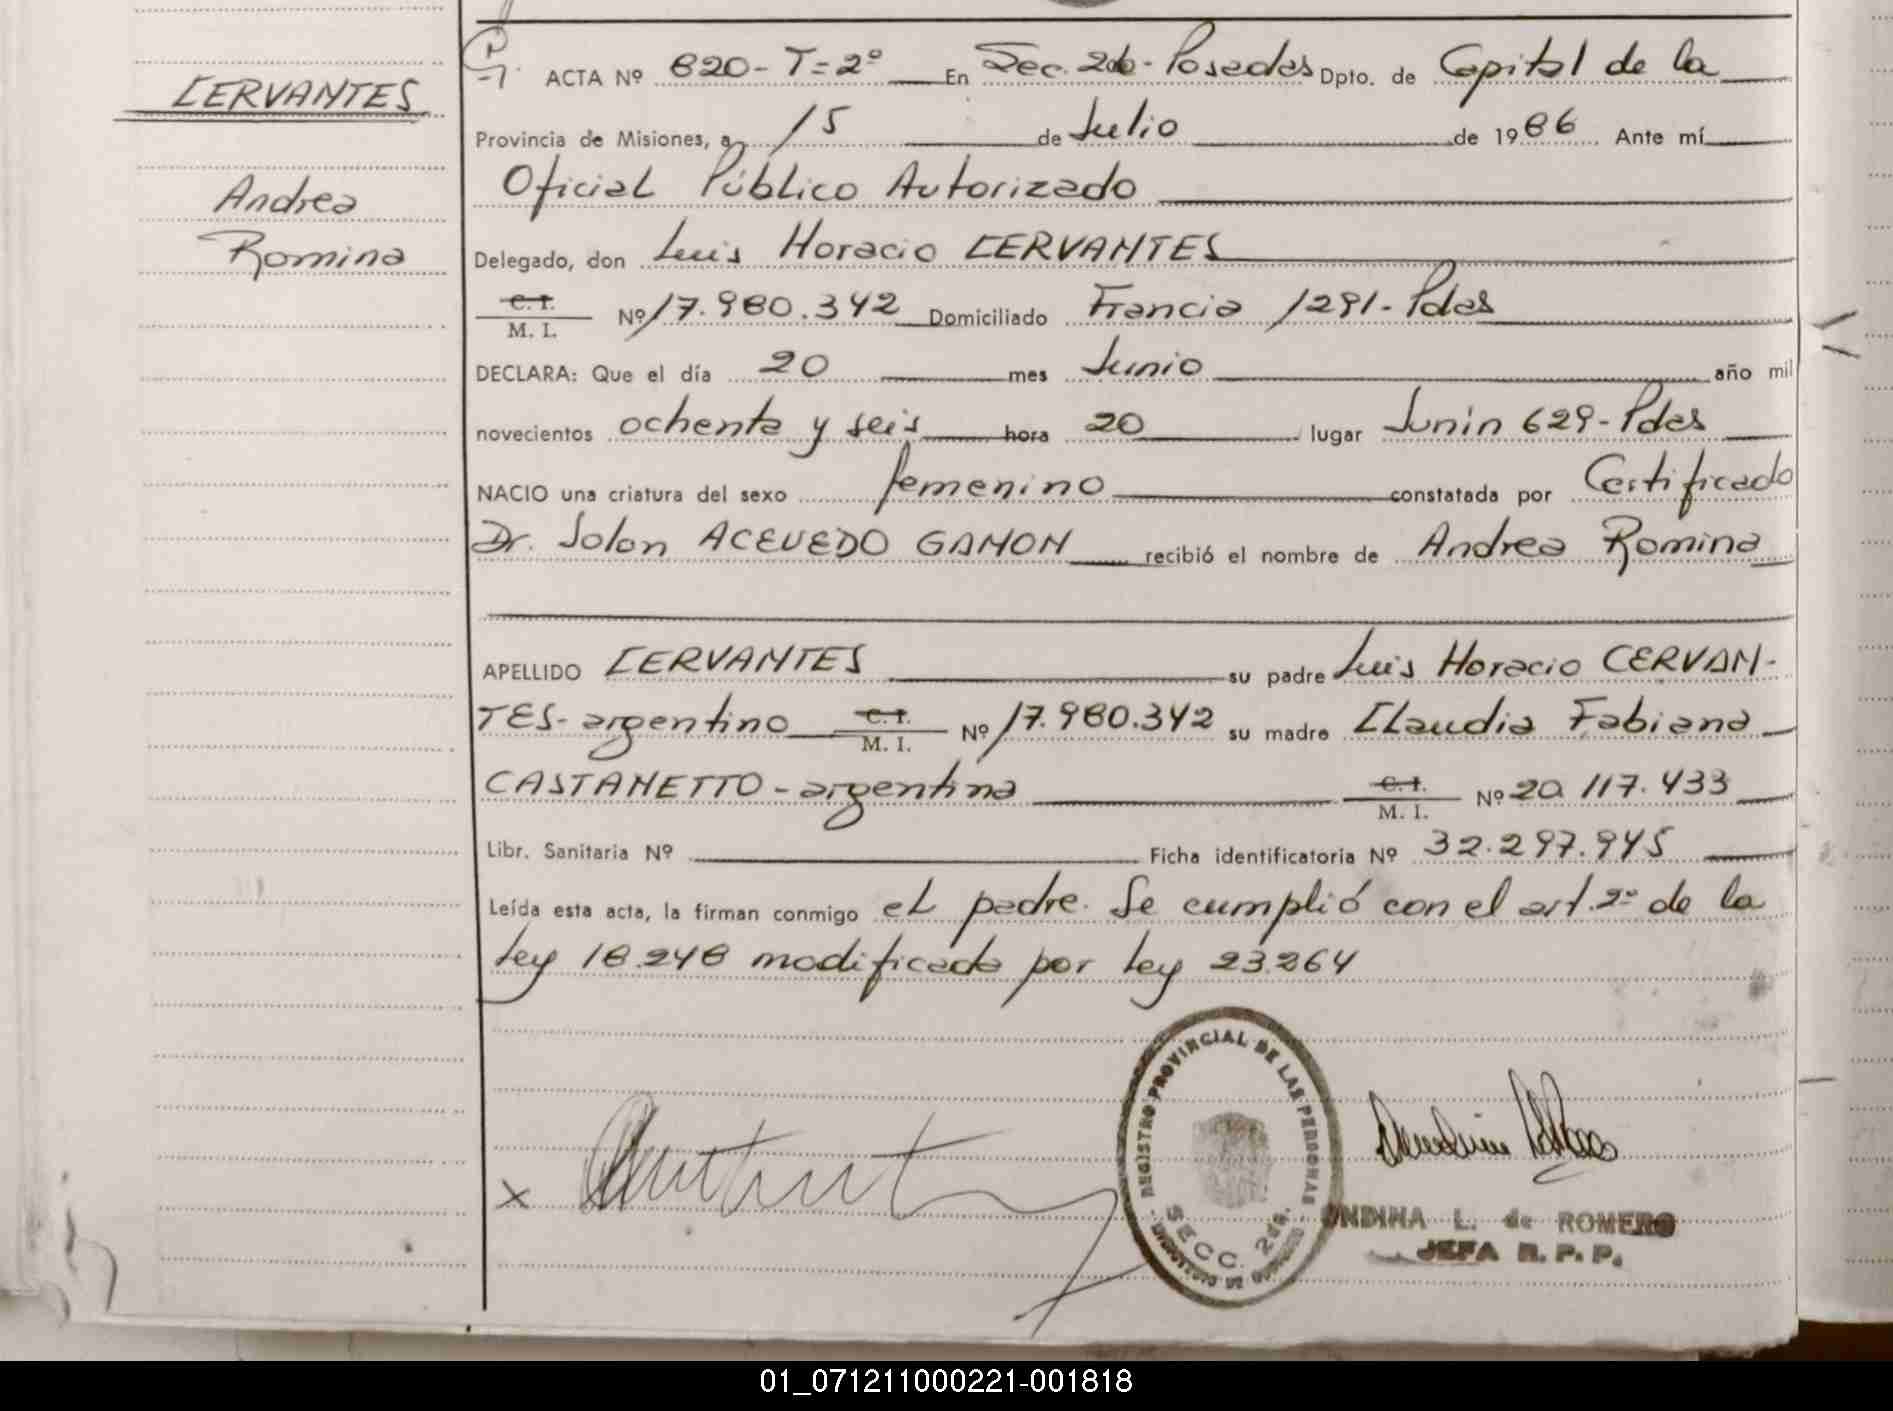 CERVANTES
Andrea
Romina
ACTA Nº 820-T=2º En Sec. 2da-Posadas Dpto. de Capital de la
Provincia de Misiones, a 15 de Julio de 1986 Ante mí
Oficial Público Autorizado
Delegado, don Luis Horacio CERVANTES
C. I.
M. I. Nº 17.980.342 Domiciliado Francia 1291-Pdas
DECLARA: Que el día 20 mes Junio año mil
novecientos ochenta y seis hora 20 lugar Junin 629-Pdas
NACIO una criatura del sexo femenino constatada por Certificado
Dr. Solon ACEVEDO GAMON recibió el nombre de Andrea Romina
APELLIDO CERVANTES su padre Luis Horacio CERVAN-
TES-argentino C. I. M. I. Nº 17.980.342 su madre Claudia Fabiana
CASTANETTO-argentina C. I. M. I. Nº 20.117.433
Libr. Sanitaria Nº Ficha identificatoria Nº 32.297.945
Leída esta acta, la firman conmigo el padre. Se cumplió con el art. 2º de la
Ley 18.248 modificada por Ley 23.264
REGISTRO PROVINCIAL DE LAS PERSONAS
SECC. 2da.
ONDINA L. de ROMERO
JEFA R. P. P.
01_071211000221-001818